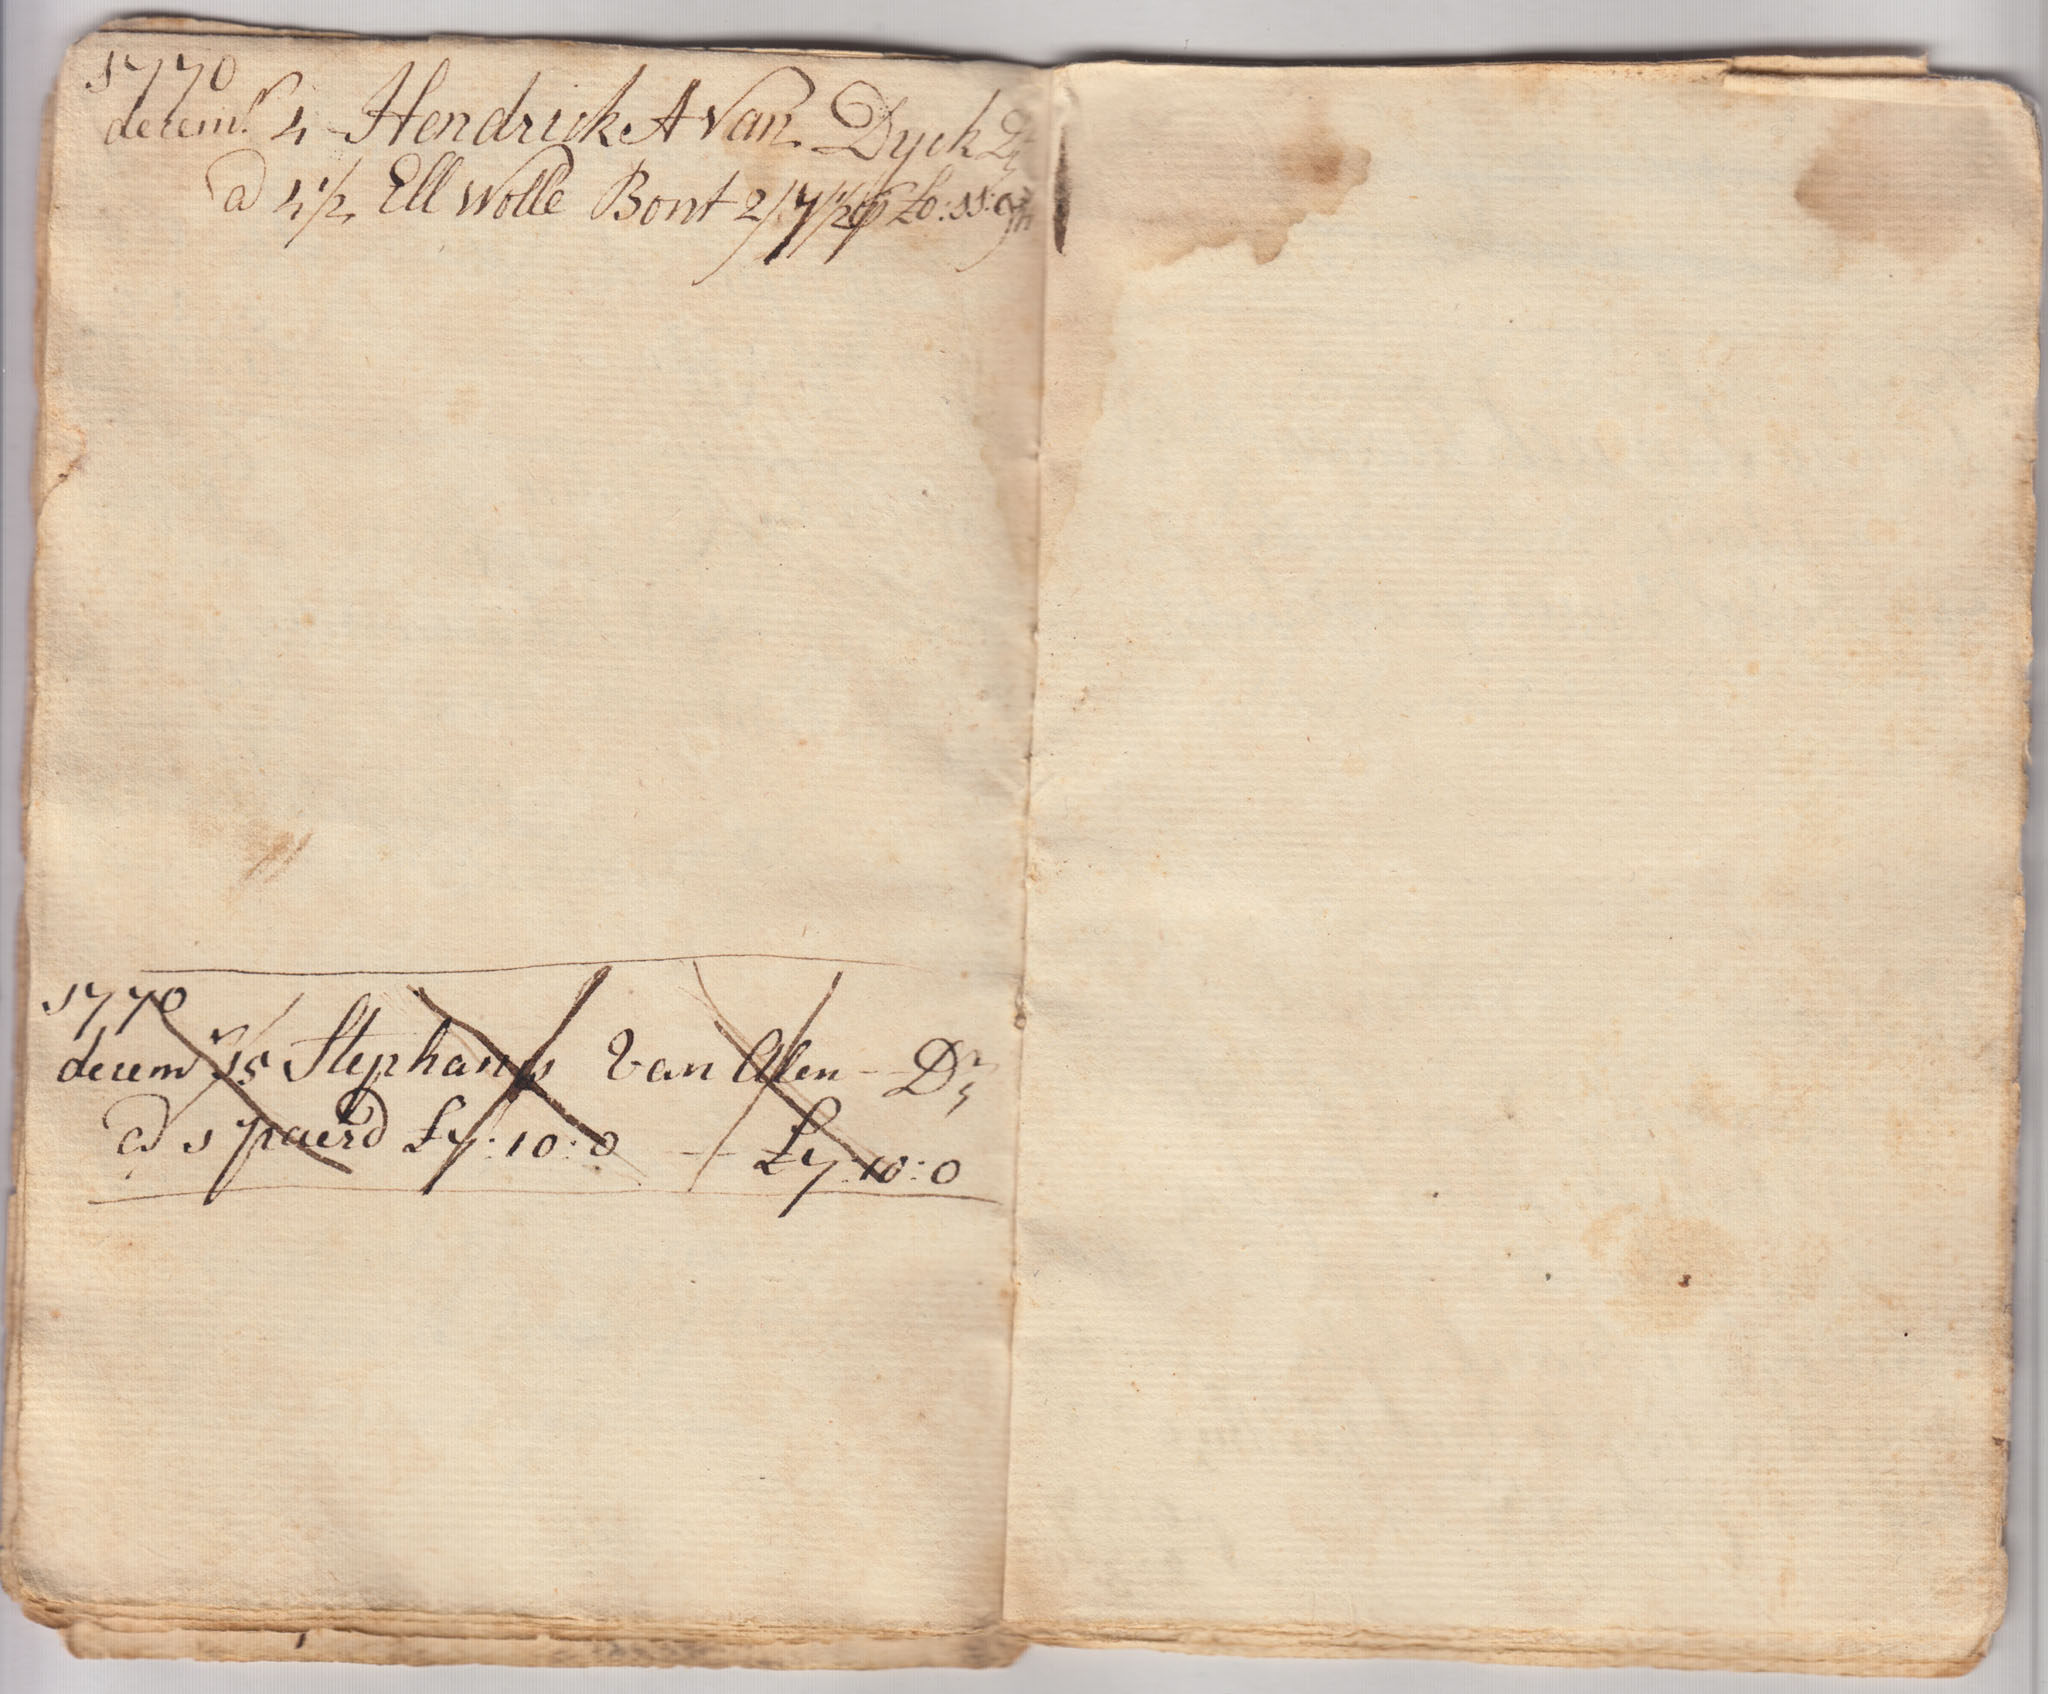 1770
decemr 4 Hendrick A Van Dyck Dr
a 4½ Ell Wolle Bont 2/7½ £0:11:9¾
1770
decemr 15 Stephanus Van Alen - Dr
a 1 paerd £7:10:0 - £7:10:0